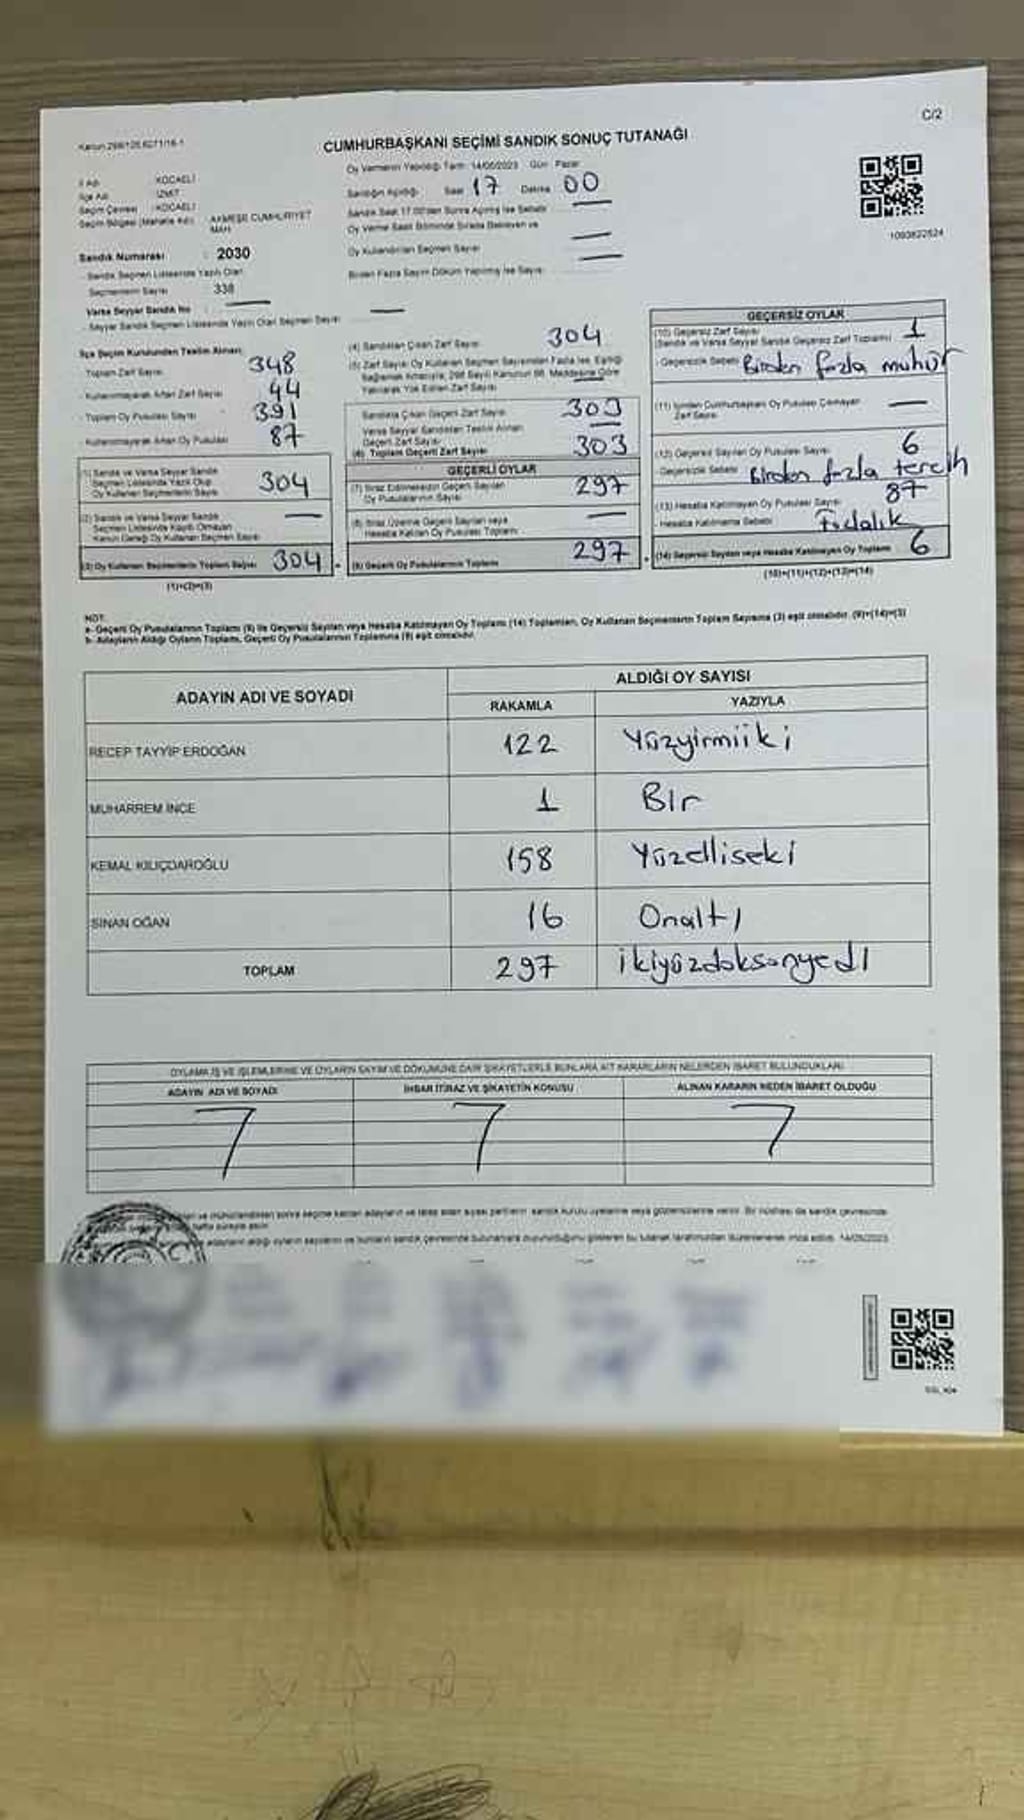 C/2
Kanun 298/105,6271/16-1
CUMHURBAŞKANI SEÇİMİ SANDIK SONUÇ TUTANAĞI
İl Adı KOCAELİ
İlçe Adı İZMİT
Seçim Çevresi KOCAELİ
Seçim Bölgesi (Mahalle Adı) AKMEŞE CUMHURİYET MAH
Sandık Numarası : 2030
Sandık Seçmen Listesinde Yazılı Olan
Seçmenlerin Sayısı 338
Varsa Seyyar Sandık No
Seyyar Sandık Seçmen Listesinde Yazılı Olan Seçmen Sayısı
Oy Vermenin Yapıldığı Tarih: 14/05/2023 Gün: Pazar
Sandığın Açıldığı Saat 17 Dakika 00
Sandık Saat 17.00'den Sonra Açılmış İse Sebebi
Oy Verme Saati Bitiminde Sırada Bekleyen ve
Oy Kullandırılan Seçmen Sayısı
Birden Fazla Sayım Döküm Yapılmış İse Sayısı
1093822524
İlçe Seçim Kurulundan Teslim Alınan;
Toplam Zarf Sayısı 348
Kullanılmayarak Artan Zarf Sayısı 44
Toplam Oy Pusulası Sayısı 391
Kullanılmayarak Artan Oy Pusulası 87
(1) Sandık ve Varsa Seyyar Sandık
Seçmen Listesinde Yazılı Olup
Oy Kullanan Seçmenlerin Sayısı 304
(2) Sandık ve Varsa Seyyar Sandık
Seçmen Listesinde Kayıtlı Olmayan
Kanun Gereği Oy Kullanan Seçmen Sayısı
(3) Oy Kullanan Seçmenlerin Toplam Sayısı 304
(1)+(2)=(3)
(4) Sandıktan Çıkan Zarf Sayısı 304
(5) Zarf Sayısı Oy Kullanan Seçmen Sayısından Fazla İse, Eşitliği
Sağlamak Amacıyla, 298 Sayılı Kanunun 98. Maddesine Göre
Yakılarak Yok Edilen Zarf Sayısı
Sandıkta Çıkan Geçerli Zarf Sayısı 303
Varsa Seyyar Sandıktan Teslim Alınan
Geçerli Zarf Sayısı
(6) Toplam Geçerli Zarf Sayısı 303
GEÇERLİ OYLAR
(7) İtiraz Edilmeksizin Geçerli Sayılan
Oy Pusulalarının Sayısı 297
(8) İtiraz Üzerine Geçerli Sayılan veya
Hesaba Katılan Oy Pusulası Toplamı
(9) Geçerli Oy Pusulalarının Toplamı 297
GEÇERSİZ OYLAR
(10) Geçersiz Zarf Sayısı
(Sandık ve Varsa Seyyar Sandık Geçersiz Zarf Toplamı) 1
Geçersizlik Sebebi Birden fazla mühür
(11) İçinden Cumhurbaşkanı Oy Pusulası Çıkmayan
Zarf Sayısı
(12) Geçersiz Sayılan Oy Pusulası Sayısı 6
Geçersizlik Sebebi Birden fazla tercih
(13) Hesaba Katılmayan Oy Pusulası Sayısı 87
Hesaba Katılmama Sebebi Fazlalık
(14) Geçersiz Sayılan veya Hesaba Katılmayan Oy Toplamı 6
(10)+(11)+(12)+(13)=(14)
NOT:
a- Geçerli Oy Pusulalarının Toplamı (9) ile Geçersiz Sayılan veya Hesaba Katılmayan Oy Toplamı (14) Toplamları, Oy Kullanan Seçmenlerin Toplam Sayısına (3) eşit olmalıdır. (9)+(14)=(3)
b- Adayların Aldığı Oyların Toplamı, Geçerli Oy Pusulalarının Toplamına (9) eşit olmalıdır.
ADAYIN ADI VE SOYADI
ALDIĞI OY SAYISI
RAKAMLA YAZIYLA
RECEP TAYYİP ERDOĞAN 122 Yüzyirmiiki
MUHARREM İNCE 1 Bir
KEMAL KILIÇDAROĞLU 158 Yüzelliseki
SİNAN OĞAN 16 Onaltı
TOPLAM 297 ikiyüzdoksanyedi
OYLAMA İŞ VE İŞLEMLERİNE VE OYLARIN SAYIM VE DÖKÜMÜNE DAİR ŞİKAYETLERLE BUNLARA AİT KARARLARIN NELERDEN İBARET BULUNDUKLARI
ADAYIN ADI VE SOYADI İHBAR İTİRAZ VE ŞİKAYETİN KONUSU ALINAN KARARIN NEDEN İBARET OLDUĞU
ve mühürlendikten sonra seçime katılan adayların ve talep eden siyasi partilerin sandık kurulu üyelerine veya gözlemcilerine verilir. Bir nüshası da sandık çevresinde
hafta süreyle asılır.
adayların aldığı oyların sayılarını ve bunların sandık çevresinde bulunanlara duyurulduğunu gösteren bu tutanak tarafımızdan düzenlenerek imza edildi. 14/05/2023